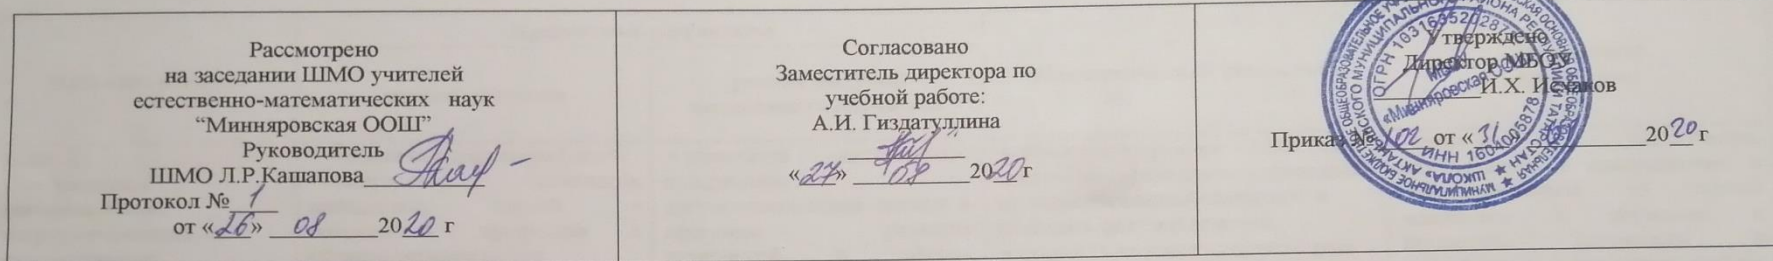 Рассмотрено
на заседании ШМО учителей
естественно-математических наук
“Минняровская ООШ”
Руководитель
ШМО Л.Р.Кашапова
Протокол № 1
от «26» 08 2020 г
Согласовано
Заместитель директора по
учебной работе:
А.И. Гиздатуллина
«27» 08 2020 г
Утверждено
Директор МБОУ
«Минняровская ООШ»
И.Х. Исхаков
Приказ № 102 от «31» 2020 г
ОГРН
ИНН 1604005878